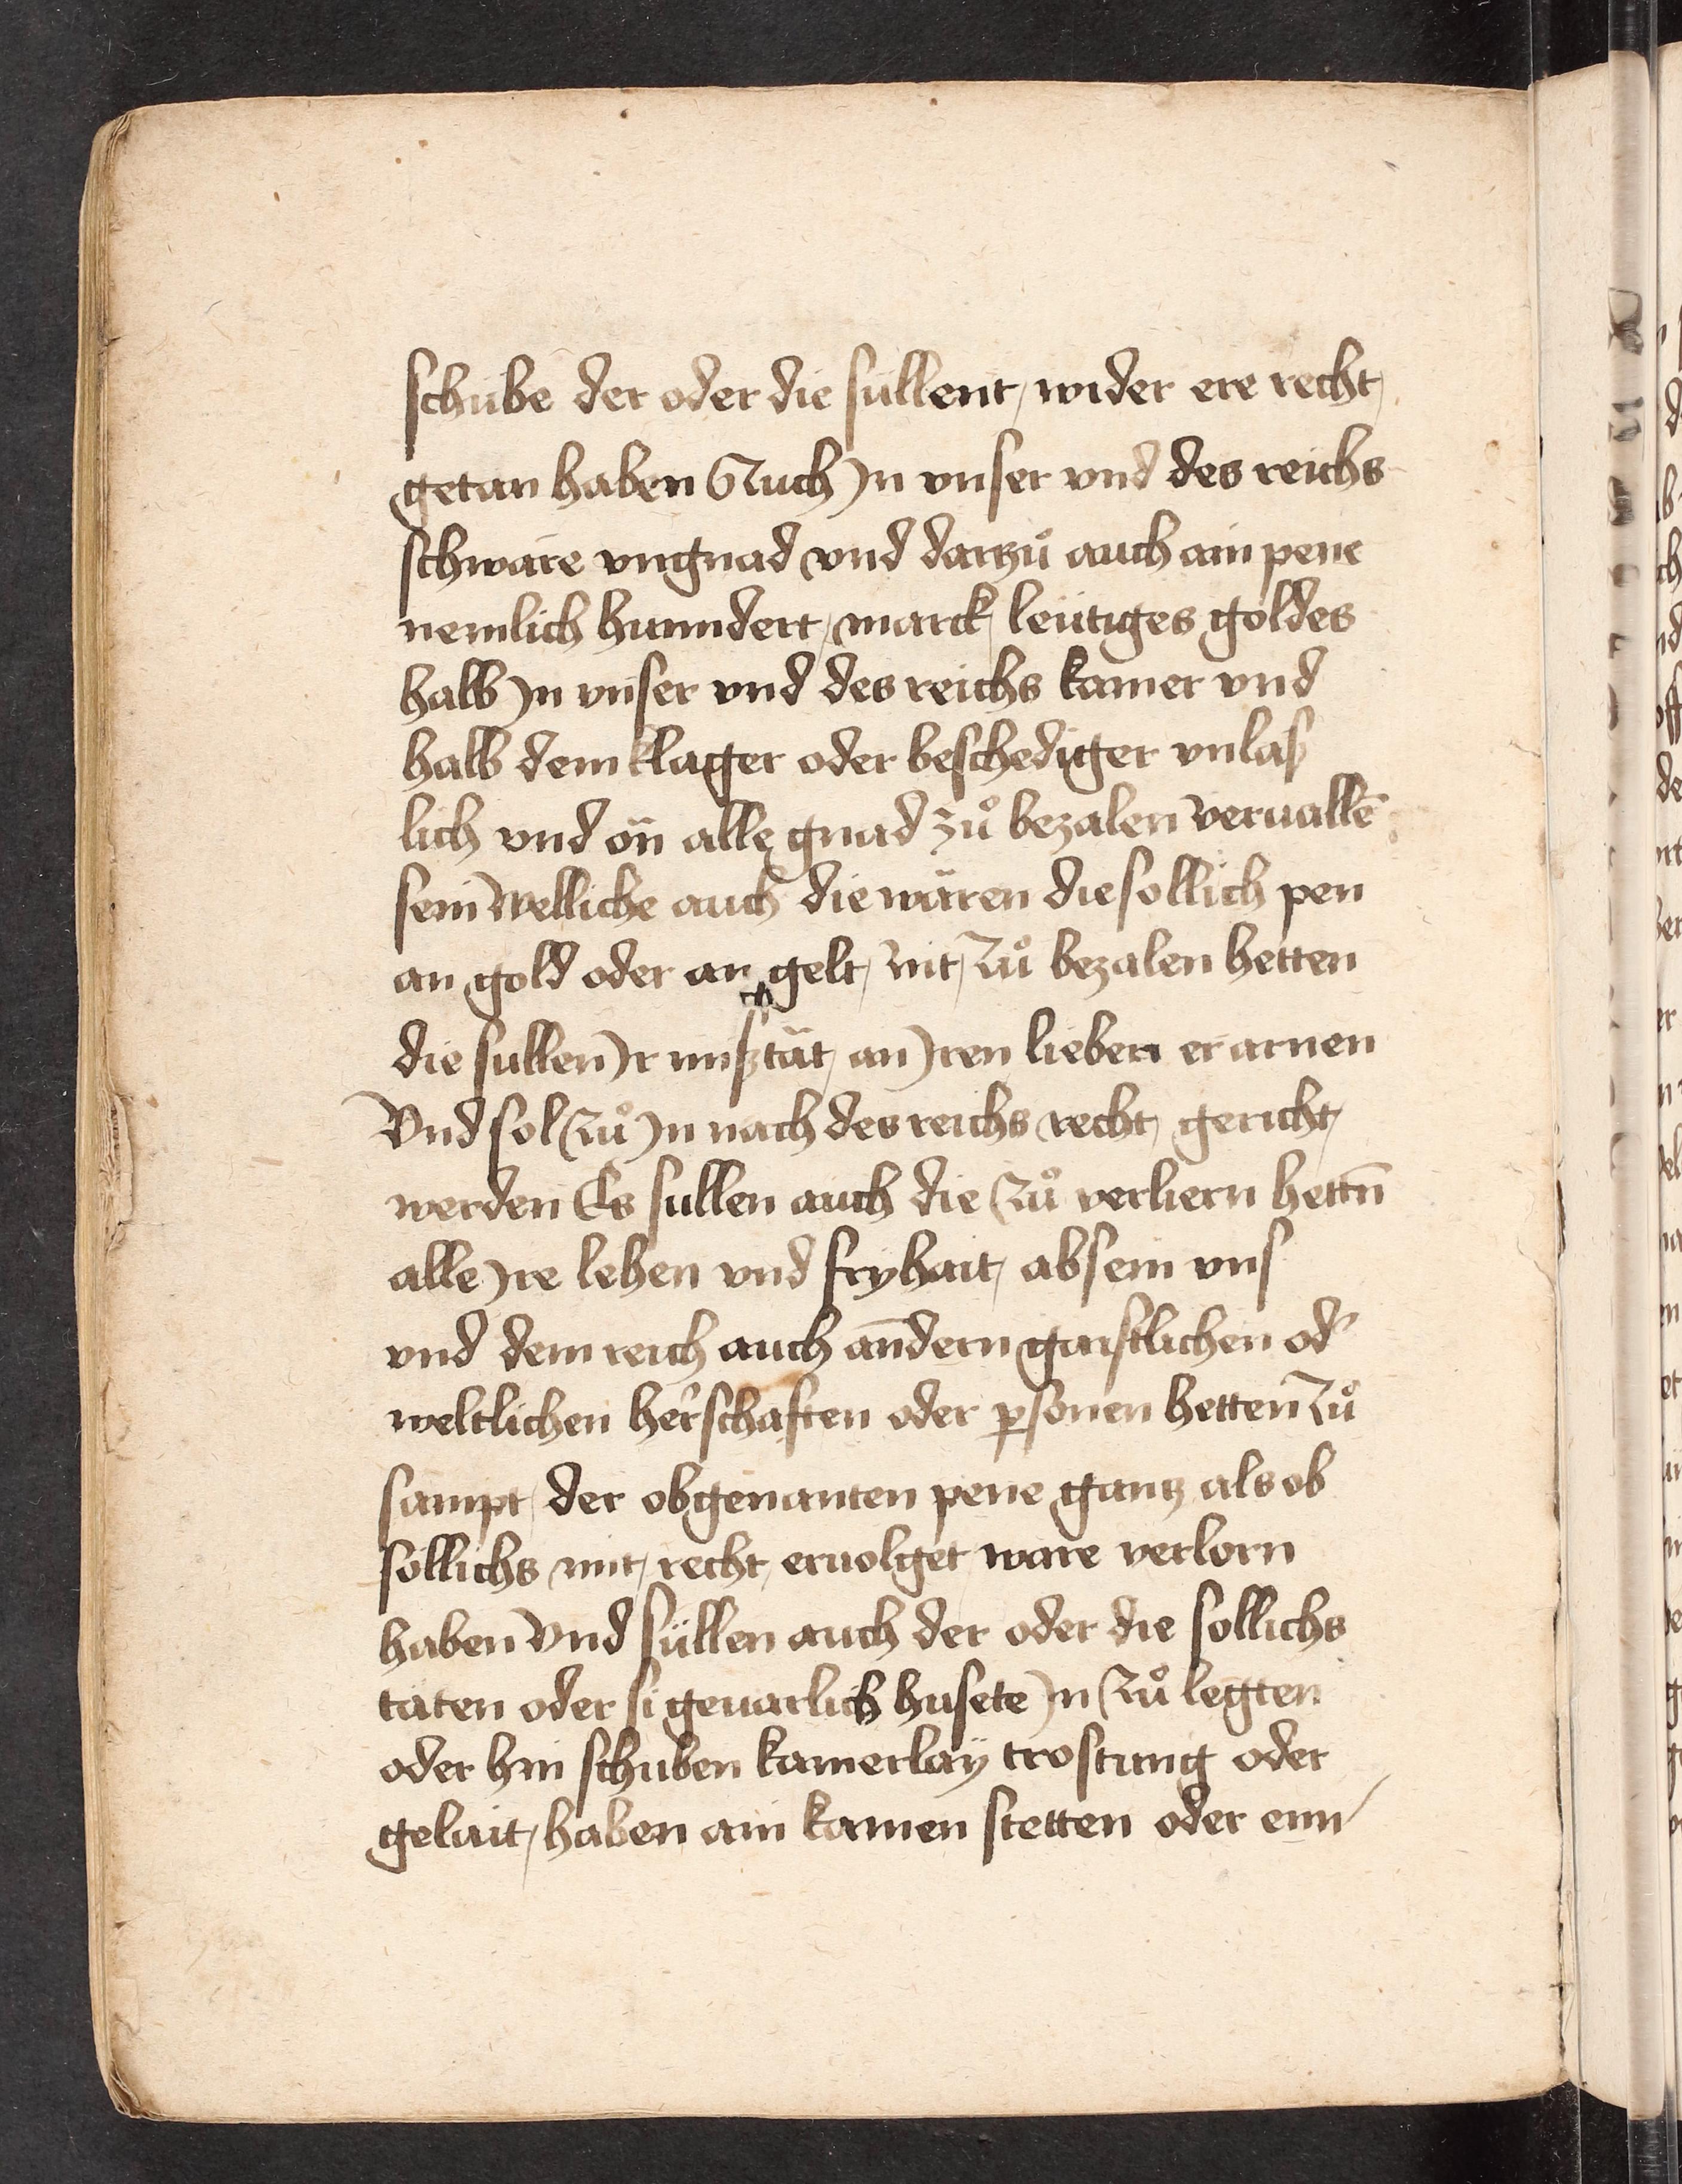 schube der oder die sullent wider ere recht
getan haben Auch Jn vnser vnd des reichs
schwäre vngnad vnd dartzů auch ain pene
nemlich hunndert marck leütiges goldes
halb Jn vnser vnd des reichs kamer vnd
halb dem klager oder beschediger vnlaß
lich vnd on alle gnad zů bezalen veruallē
sein Welliche auch die wären die sollich pen
an gold oder an gelt nit zů bezalen hetten
die sullen Jr mißtät an Jren lieben er arnen
Vnd sol zů Jn nach des reichs recht gericht
werden Es sullen auch die zů verliern hettn̄
alle Jre lehen vnd fryhait ab sein vns
vnd dem reich auch andern gaistlichen od'
weltlichen herschaften oder psonen hetten zů
sampt der obgenanten pene gantz als ob
sollichs mit recht eruolget ware verlorn
haben Vnd süllen auch der oder die sollichs
täten oder si geuarlich husete Jn zů legten
oder hin schuben kamerlay trostung oder
gelait haben ain kamen stetten oder enn